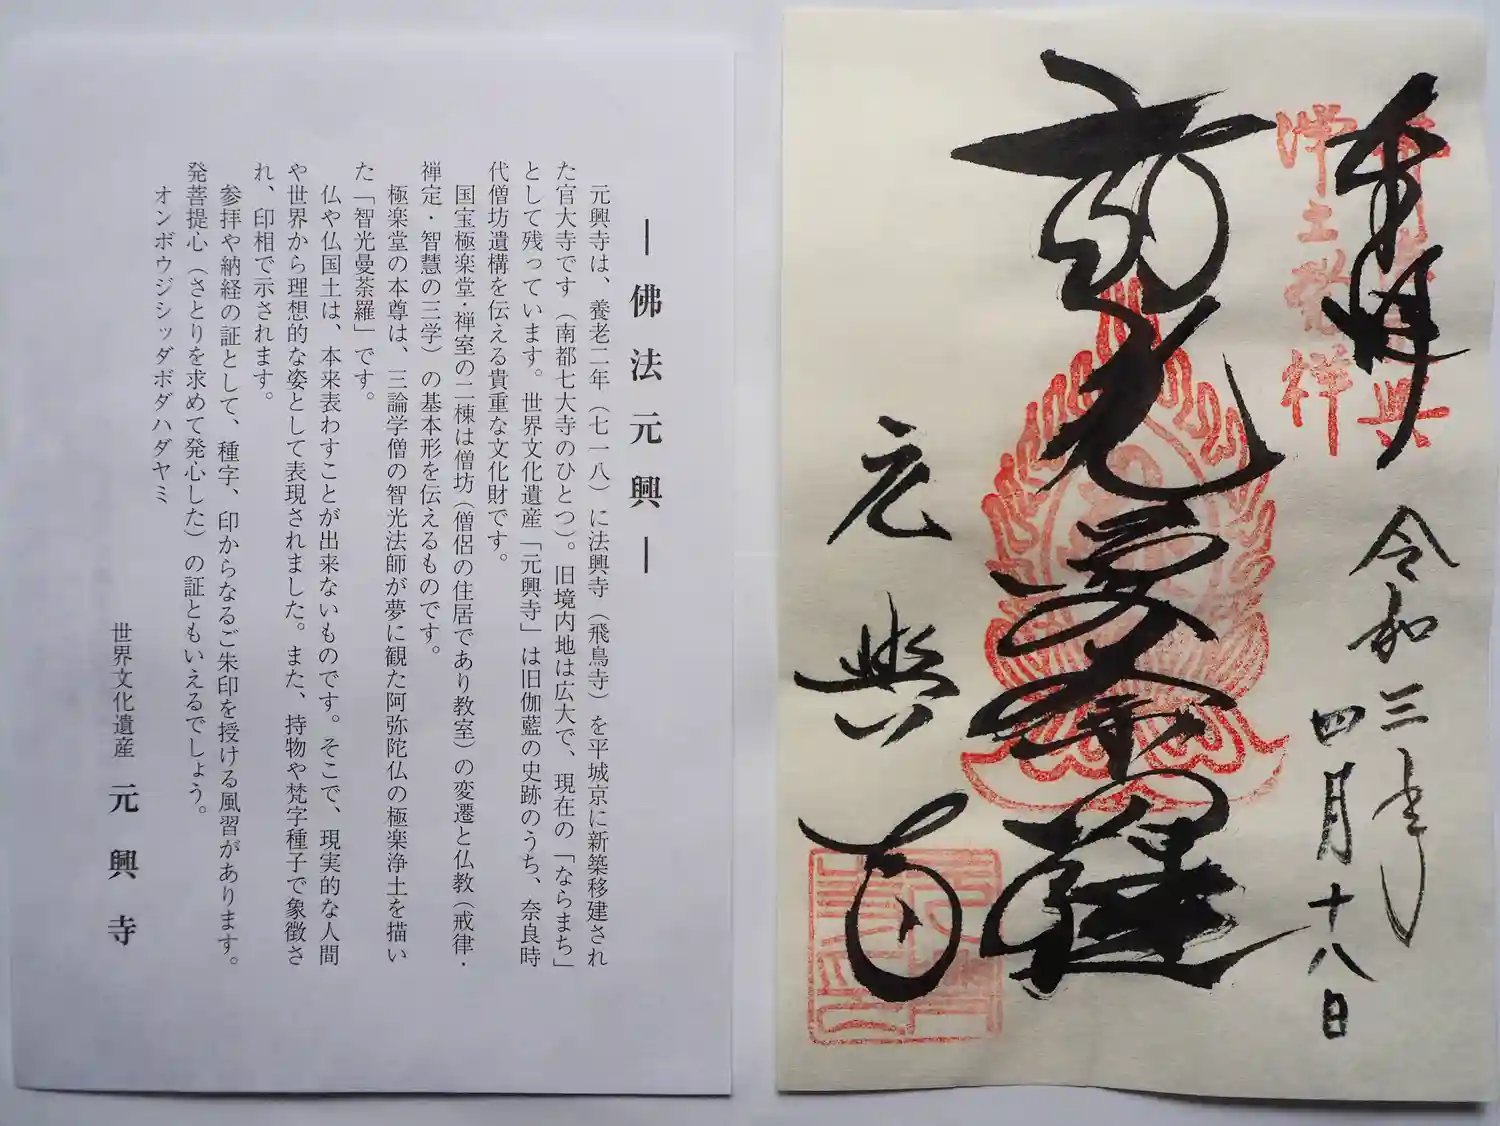 ― 佛法元興 ―
元興寺は、養老二年（七一八）に法興寺（飛鳥寺）を平城京に新築移建され
た官大寺です（南都七大寺のひとつ）。旧境内地は広大で、現在の「ならまち」
として残っています。世界文化遺産「元興寺」は旧伽藍の史跡のうち、奈良時
代僧坊遺構を伝える貴重な文化財です。
国宝極楽堂・禅室の二棟は僧坊（僧侶の住居であり教室）の変遷と仏教（戒律・
禅定・智慧の三学）の基本形を伝えるものです。
極楽堂の本尊は、三論学僧の智光法師が夢に観た阿弥陀仏の極楽浄土を描い
た「智光曼荼羅」です。
仏や仏国土は、本来表わすことが出来ないものです。そこで、現実的な人間
や世界から理想的な姿として表現されました。また、持物や梵字種子で象徴さ
れ、印相で示されます。
参拝や納経の証として、種字、印からなるご朱印を授ける風習があります。
発菩提心（さとりを求めて発心した）の証ともいえるでしょう。
オンボウジシッダボダハダヤミ
世界文化遺産 元興寺
奉拝
令和三年
四月十八日
浄土発祥
智光曼荼羅
元興寺